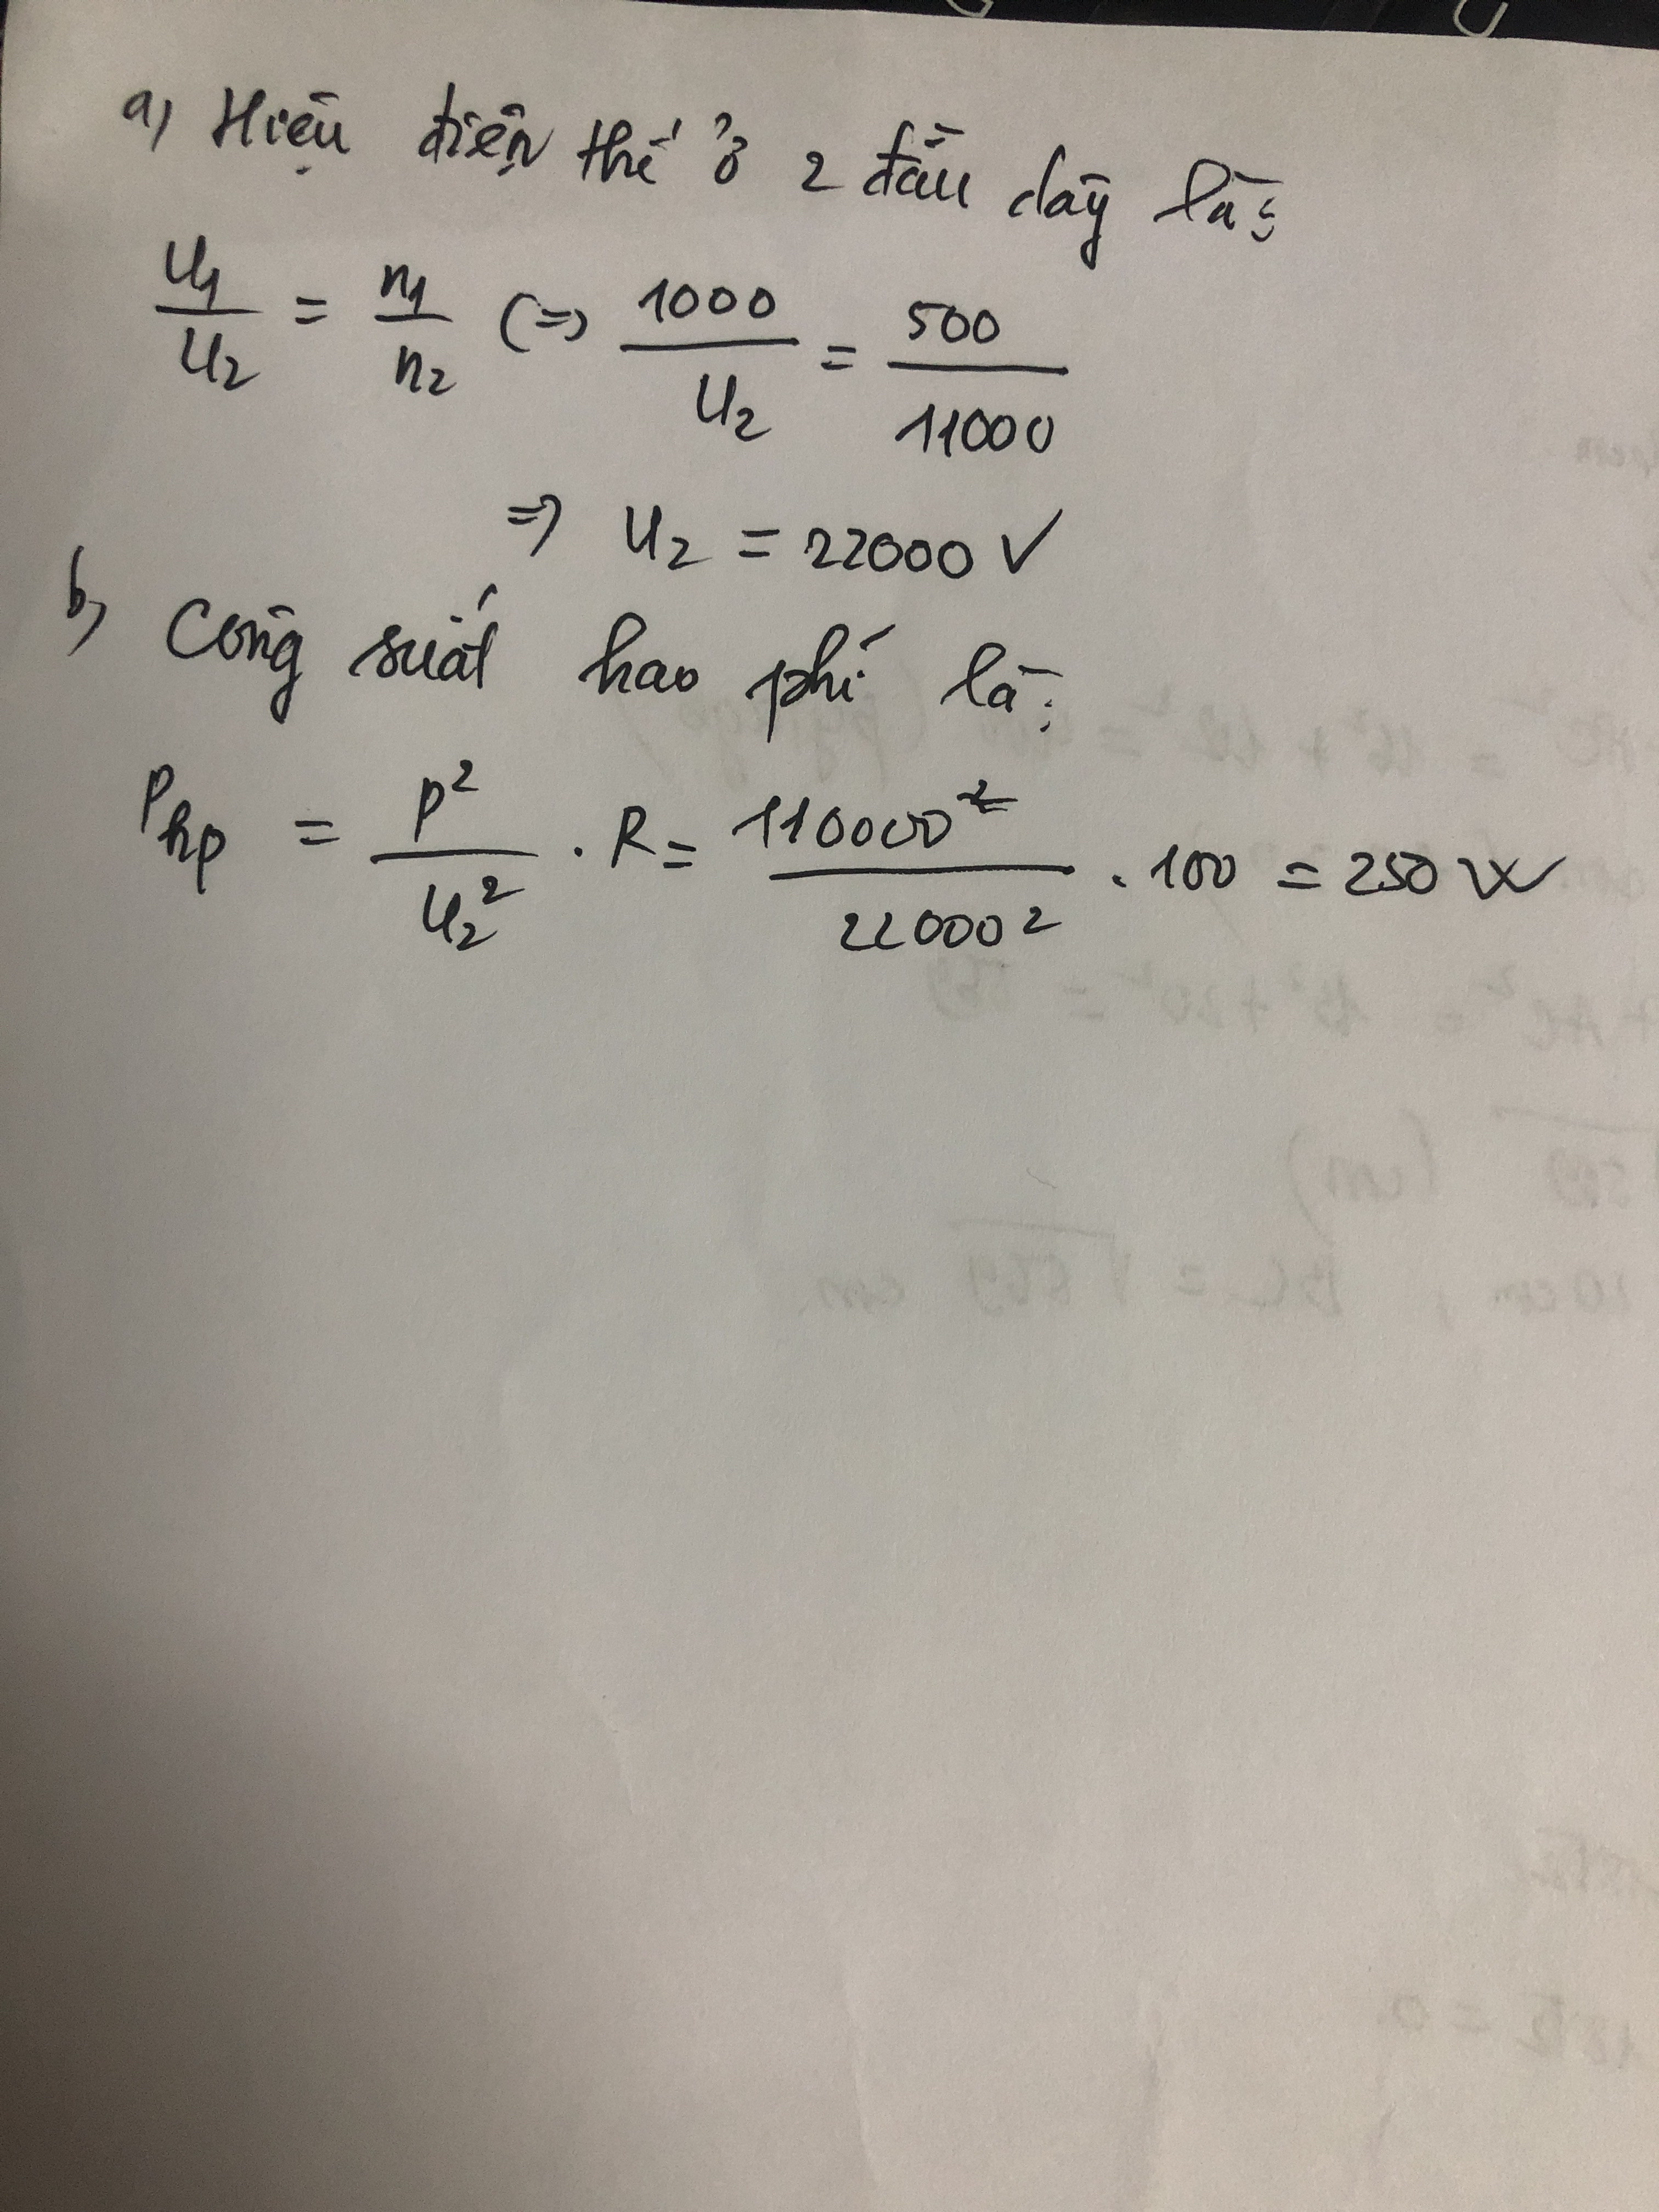 a) Hiệu điện thế ở 2 đầu dây là:
U1/U2 = n1/n2 (=) 1000/U2 = 500/11000
=> U2 = 22000 V
b) Công suất hao phí là:
Php = P²/U2² . R = 110000²/22000² . 100 = 250 W